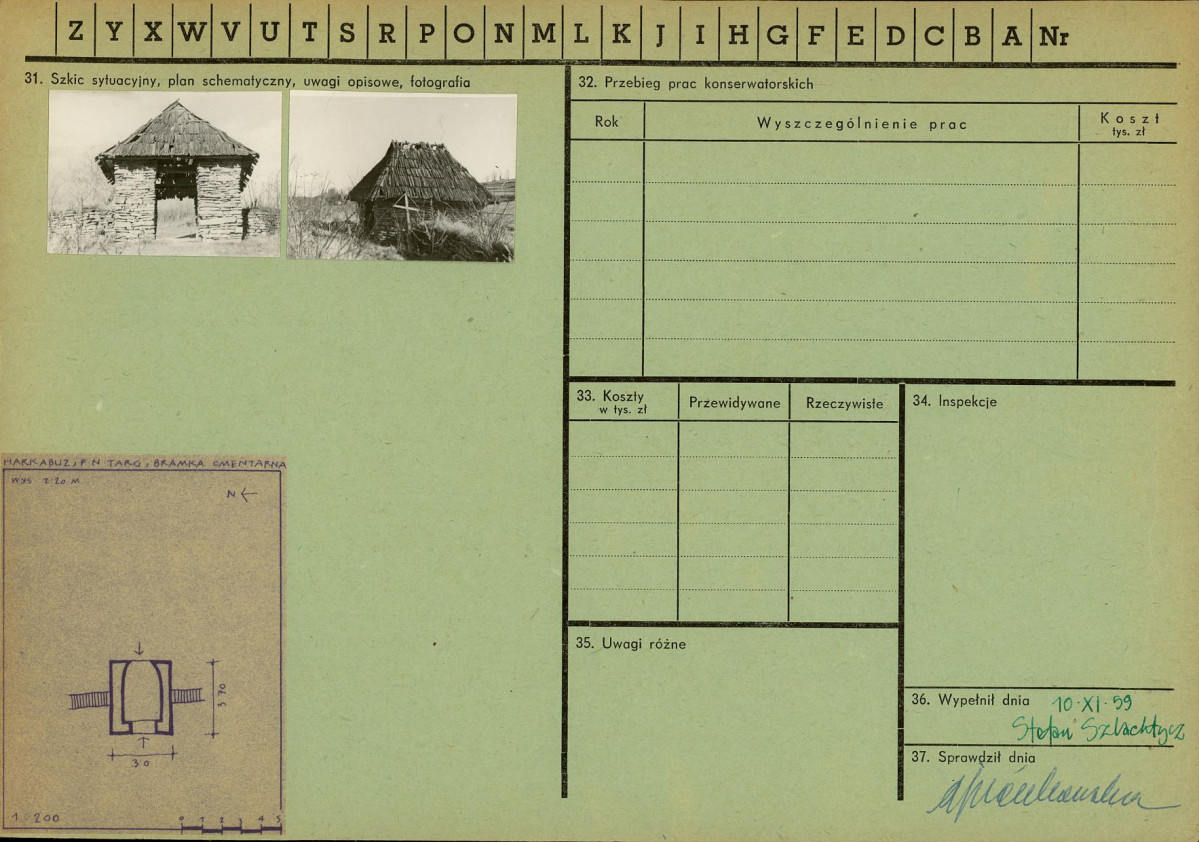 Z Y X W V U T S R P O N M L K J I H G F E D C B A Nr
31. Szkic sytuacyjny, plan schematyczny, uwagi opisowe, fotografia
32. Przebieg prac konserwatorskich
Rok
Wyszczególnienie prac
Koszt
tys. zł
33. Koszty
w tys. zł
Przewidywane
Rzeczywiste
34. Inspekcje
HARKABUZ, P. N TARG, BRAMKA CMENTARNA
WYS 2.20 M
N
3.70
30
1:200
0 1 2 3 4 5
35. Uwagi różne
36. Wypełnił dnia 10·XI·59
Stefan Szlachtycz
37. Sprawdził dnia